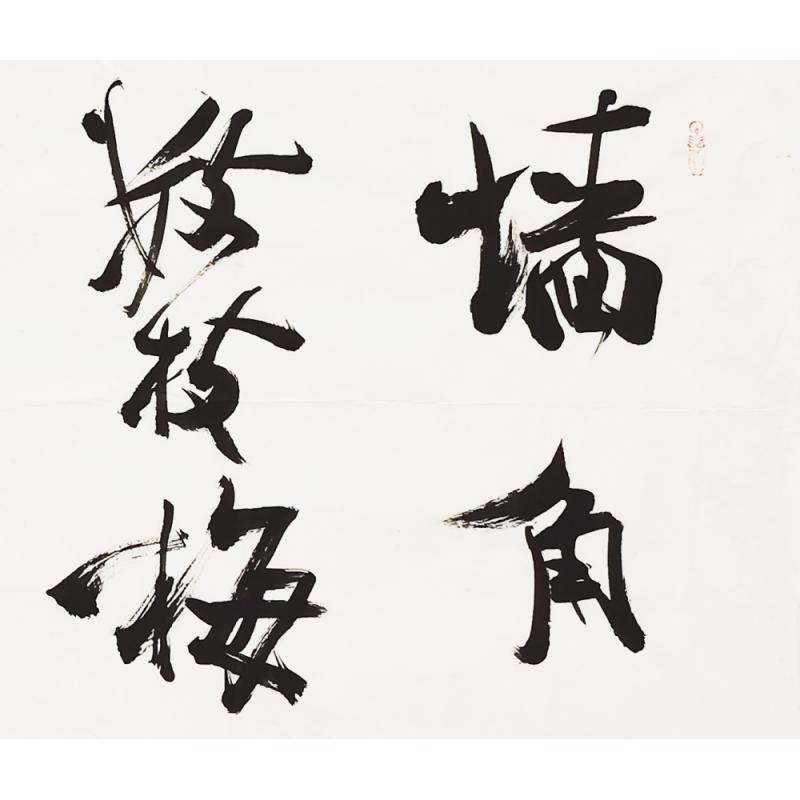 墙角
数枝梅